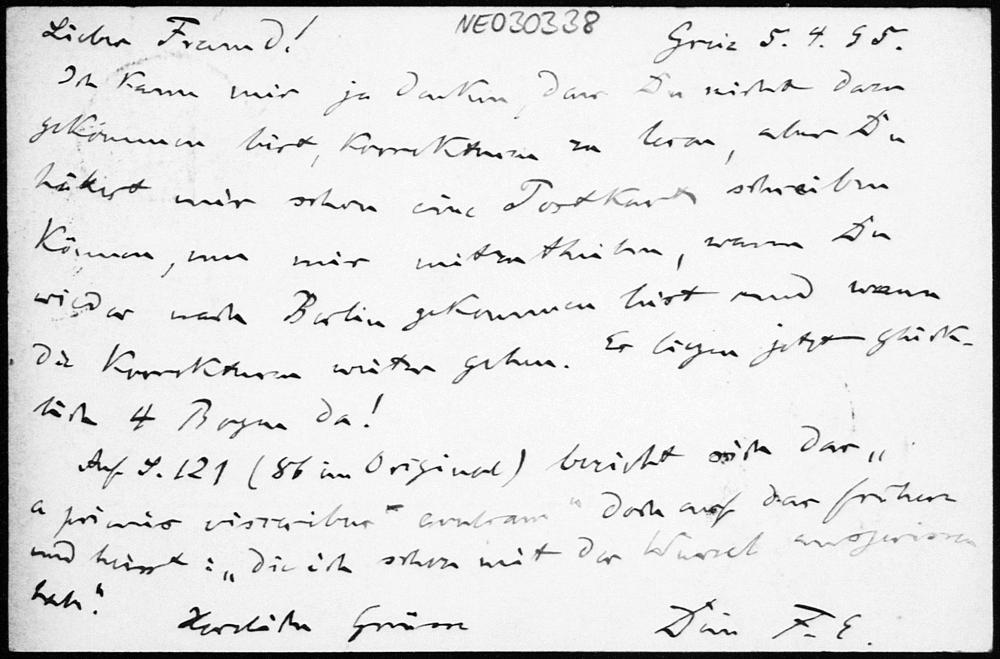 NE030338
Lieber Freund! Graz 5. 4. 95.
Ich kann mir ja denken, dass Du nicht dazu
gekommen bist, Korrekturen zu lesen, aber Du
hättest mir schon eine Postkarte schreiben
können, um mir mitzutheilen, wann Du
wieder nach Berlin gekommen bist und wann
die Korrekturen weiter gehen. Es liegen jetzt glück-
lich 4 Bogen da!
Auf S. 121 (86 im Original) bezieht sich das „
a primis visceribus" " doch auf das frühere
und heisst: „die ich schon mit der Wurzel ausgerissen
hab."
Herzliche Grüsse Dein F. E.